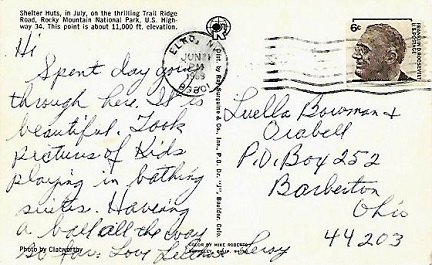 Shelter Huts, in July, on the thrilling Trail Ridge
Road, Rocky Mountain National Park, U.S. High-
way 34. This point is about 11,000 ft. elevation.
Hi
Spent day going
through here. It is
beautiful. Took
pictures of Kids
playing in bathing
suits. Having
a ball all the way
so far. Love Leroy
Photo by Clatworthy
COLOR BY MIKE ROBERTS
JUN 21
PM
1969
6c
FRANKLIN D. ROOSEVELT
U.S. POSTAGE
Luella Bowman &
Orabell
P.O. Box 252
Barberton
Ohio
44203